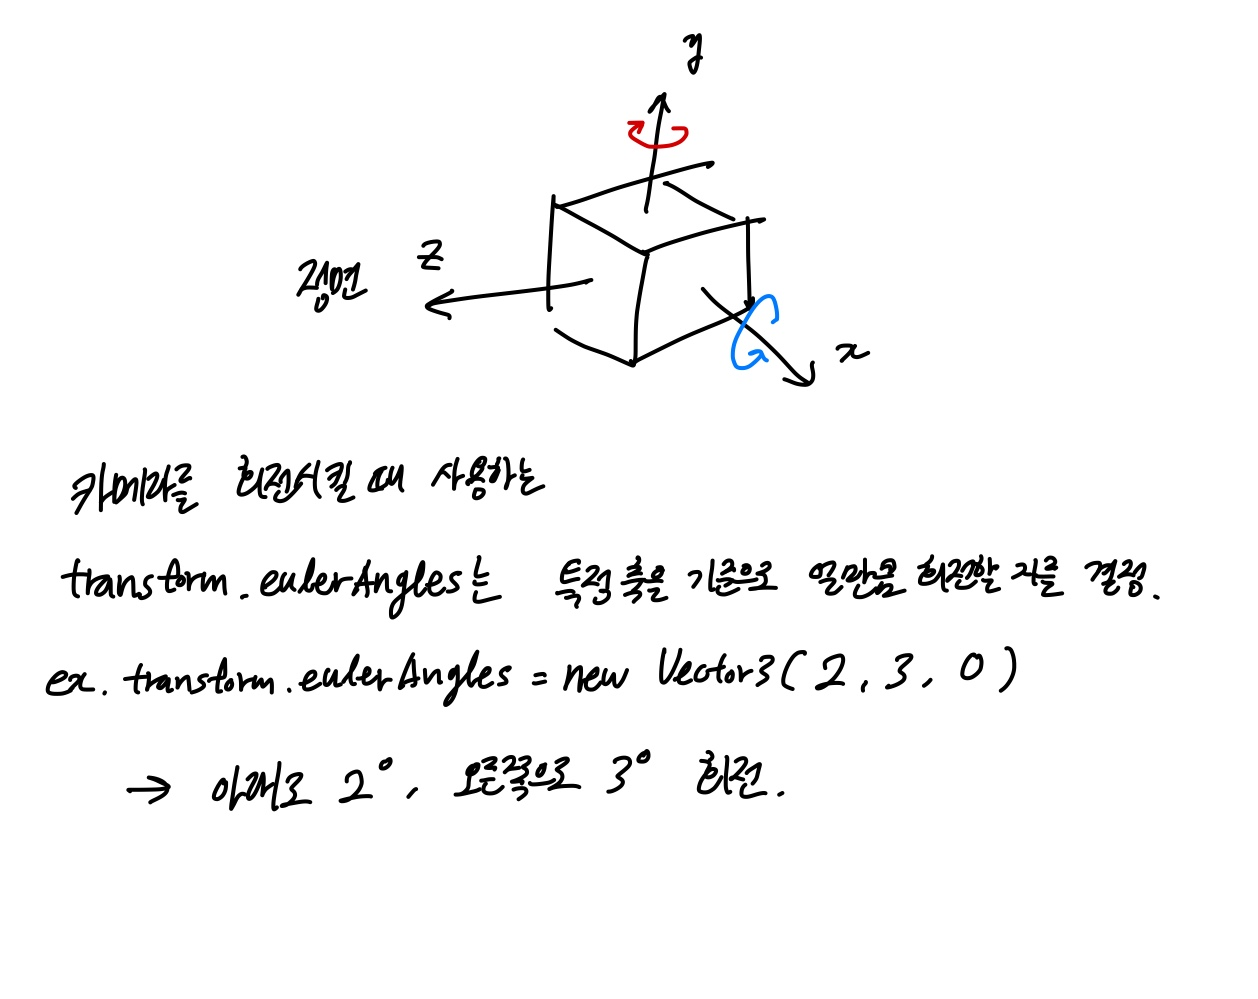 y
z
정면
x
카메라를 회전시킬 때 사용하는
transform.eulerAngles는 특정 축을 기준으로 얼만큼 회전할 지를 결정.
ex. transform.eulerAngles = new Vector3( 2, 3, 0 )
→ 아래로 2°, 오른쪽으로 3° 회전.